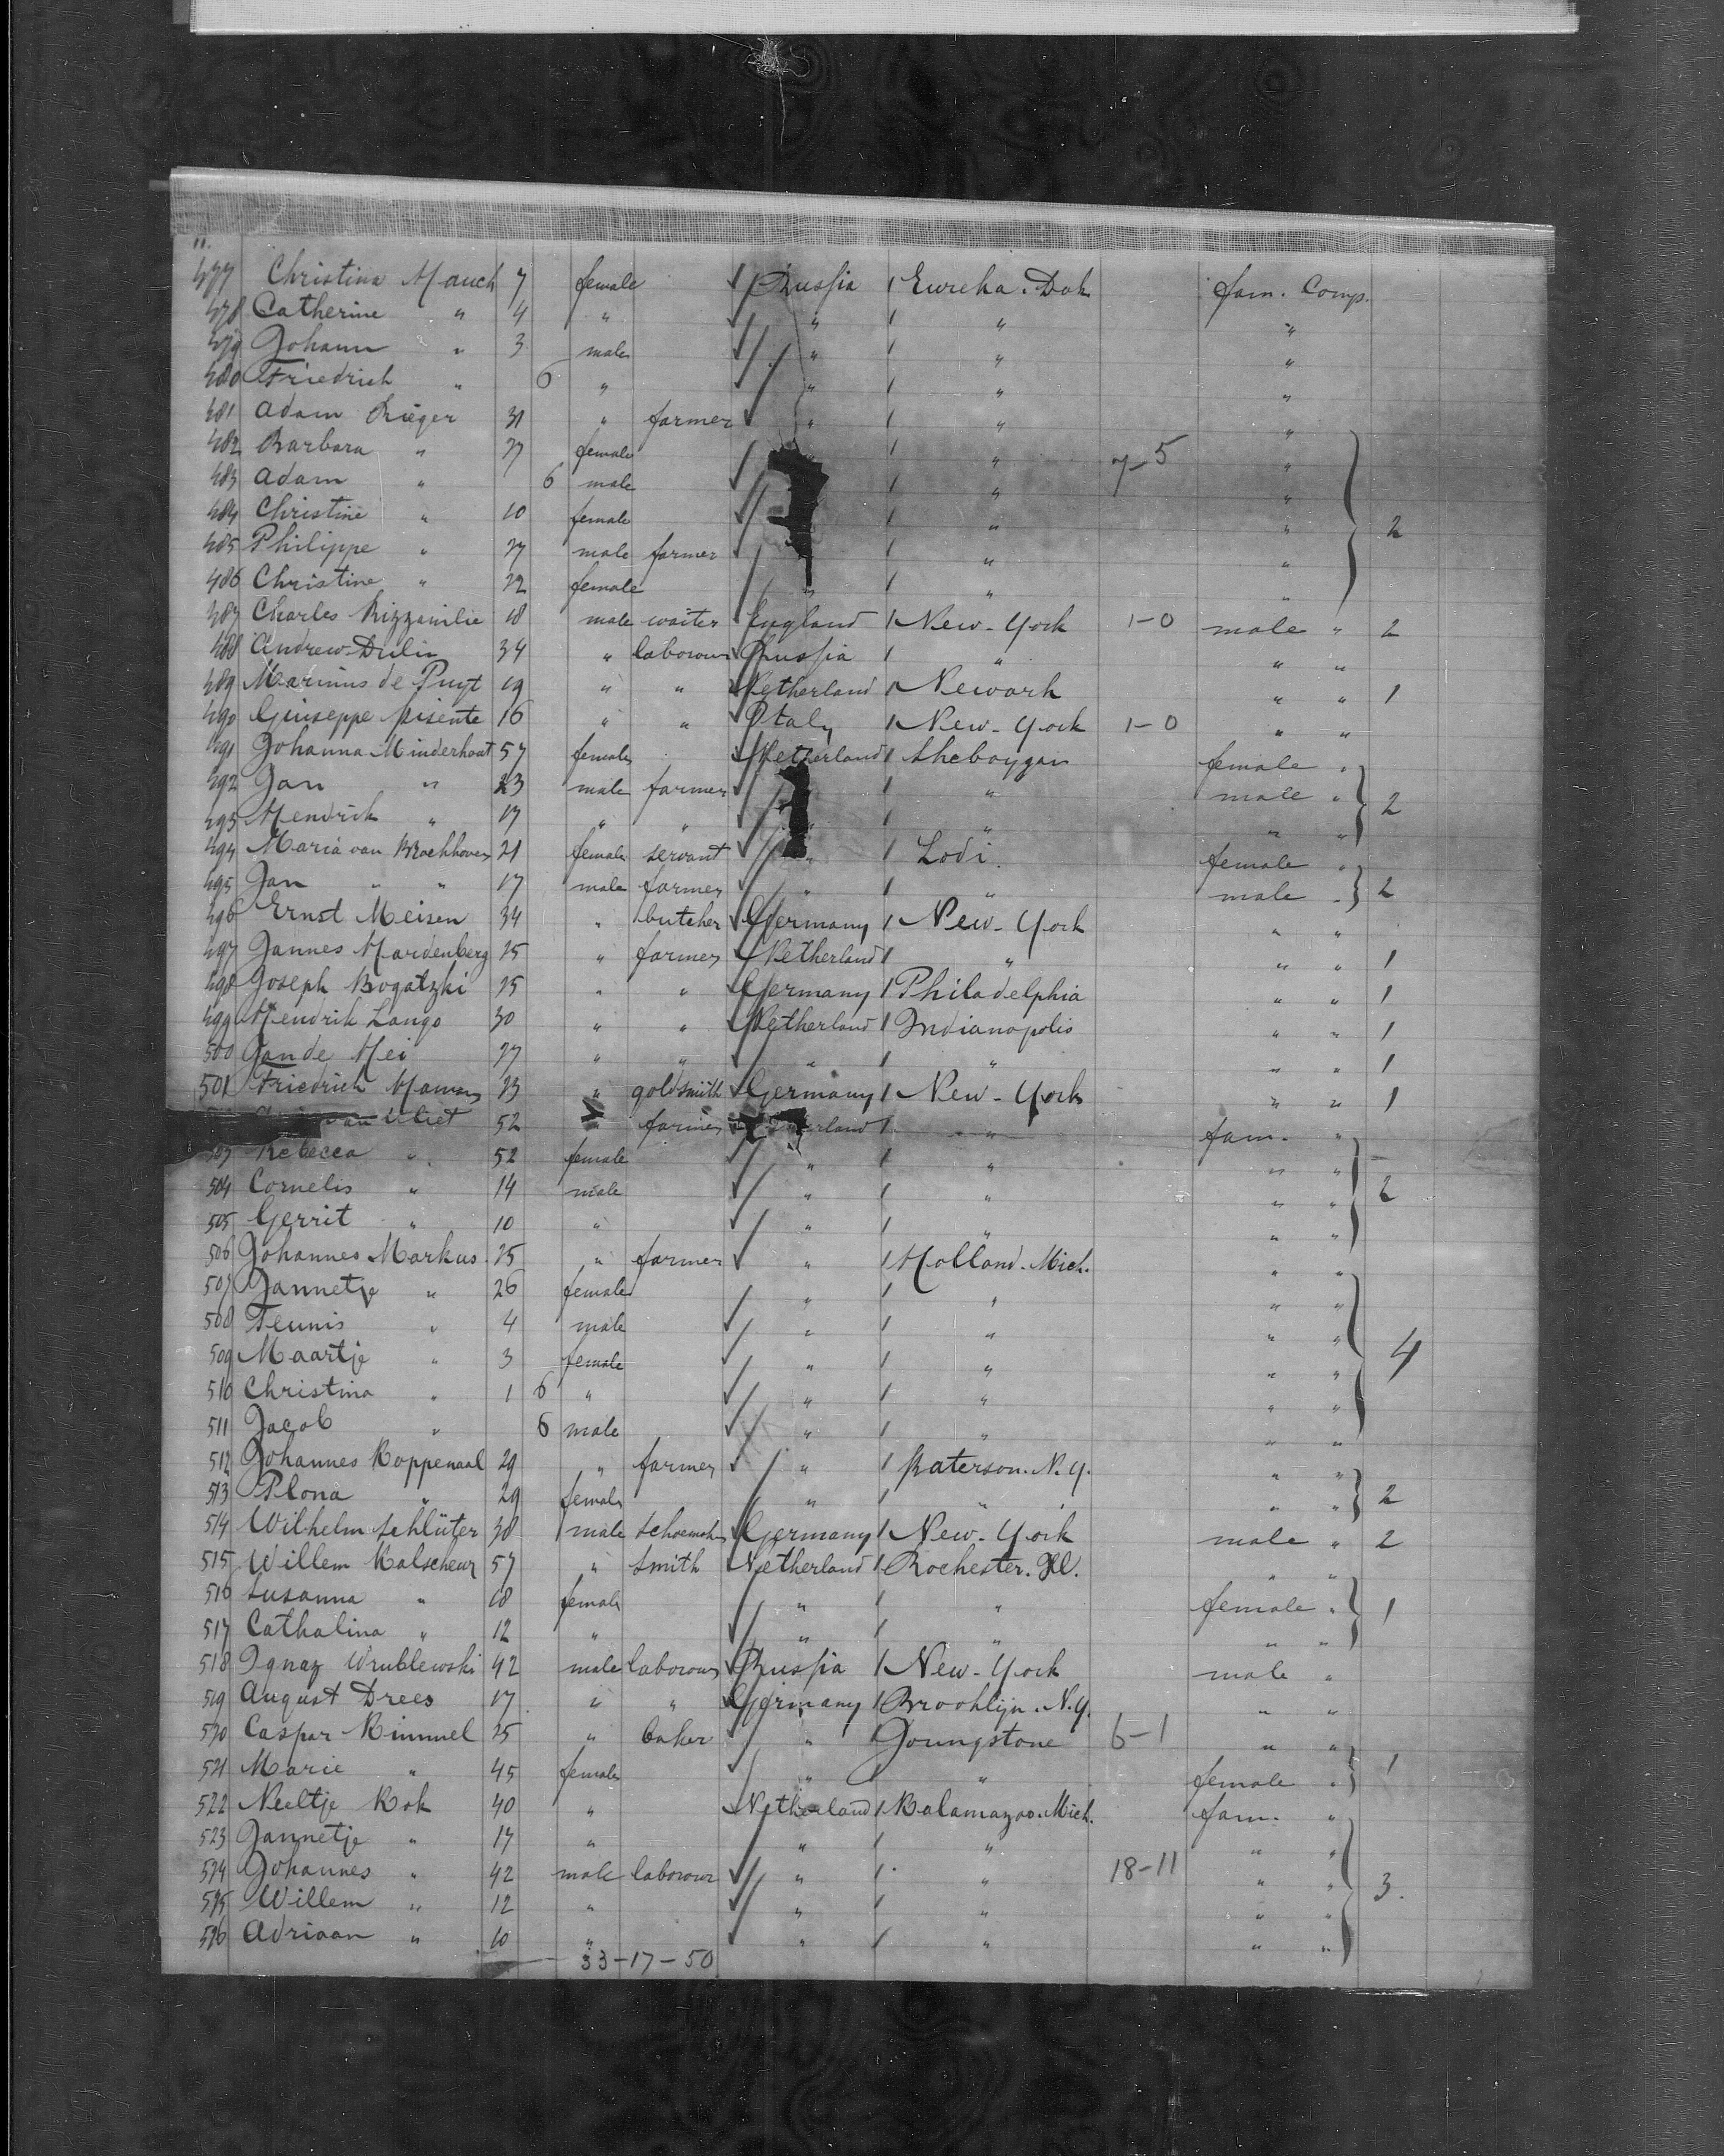 11.
477 Christina Mauch 7 female Russia Eureka. Dak fam. Comp.
478 Catherine " 4 " " " "
479 Johann " 3 male " " "
480 Friedrich " 6 " " " "
481 Adam Rieger 31 " farmer " " "
482 Barbara " 27 female " 7-5 "
483 Adam " 6 male " "
484 Christine " 10 female " " 2
485 Philippe " 27 male farmer " "
486 Christine " 22 female " " "
487 Charles 18 male waiter England New-York 1-0 male " 2
488 Andrew Dulin 34 " labourer Russia " " "
489 Marinus de Puyt 19 " " Netherland Newark " " 1
490 Giuseppe Pisente 16 " " Italy New-York 1-0 " "
491 Johanna Minderhout 57 female Netherland Sheboygan female "
492 Jan " 23 male farmer " male " 2
493 Hendrik " 17 " " " " " "
494 Maria van Brockhoven 21 female servant " Lodi. female "
495 Jan " " 17 male farmer " " male " 2
496 Ernst Meisen 34 " butcher Germany New-York " "
497 Jannes Hardenberg 25 " farmer Netherland " " " 1
498 Joseph Bogatzki 25 " " Germany Philadelphia " " 1
499 Hendrik Lango 30 " " Netherland Indianopolis " " 1
500 Jan de Hei 27 " " " " " " 1
501 Friedrich 23 " goldsmith Germany New-York " " 1
van Vliet 52 farmer " fam. "
503 Rebecca " 52 female " " " "
504 Cornelis " 14 male " " " " 2
505 Gerrit " 10 " " " " "
506 Johannes Markus 25 " farmer " Holland. Mich. " "
507 Jannetje " 26 female " " " "
508 Teunis " 4 male " " " "
509 Maartje " 3 female " " " " 4
510 Christina " 1 6 " " " " "
511 Jacob " 6 male " " " "
512 Johannes Koppenaal 29 " farmer " Paterson. N.Y. " "
513 Plona " 29 female " " " " 2
514 Wilhelm Schlüter 38 male Germany New-York male " 2
515 Willem Kalscheur 57 " smith Netherland Rochester. Ill. " "
516 Susanna " 18 female " " female " 1
517 Cathalina " 12 " " " " "
518 Ignaz Wrublewski 42 male labourer Russia New-York male "
519 August Drees 17 " " Germany Brooklijn. N.Y. " "
520 Caspar Kimmel 25 " baker " Youngstone 6-1 " "
521 Marie " 45 female " " female " 1
522 Neeltje Kok 40 " Netherland Kalamazoo. Mich. fam. "
523 Jannetje " 17 " " " " "
524 Johannes " 42 male labourer " " 18-11 " "
525 Willem " 12 " " " " " 3.
526 Adriaan " 10 " " " " "
33-17-50